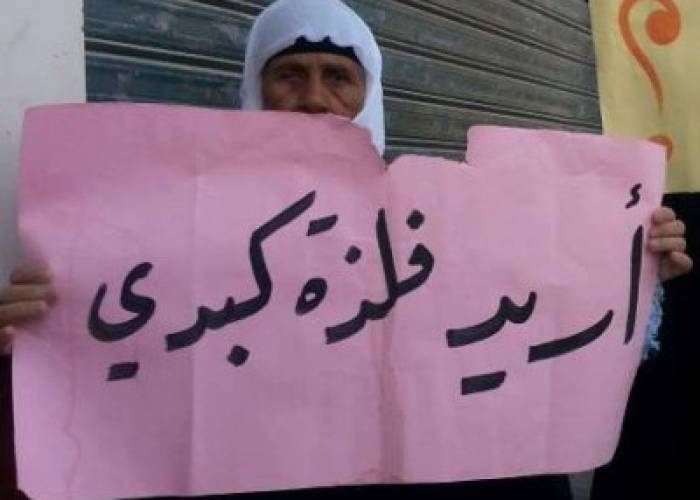 أريد فلذة كبدي
؟